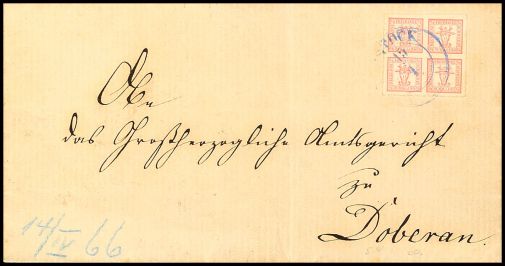 An
das Großherzogliche Amtsgericht
zu
Doberan.
14/IV 66